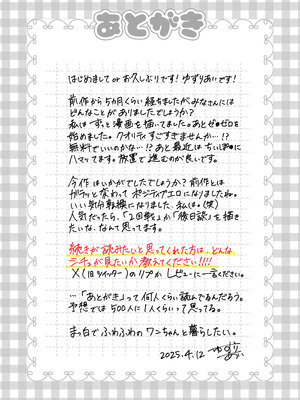 あとがき
はじめまして or お久しぶりです！ゆずりあいです！
前作から5カ月くらい経ちましたがみなさんには
どんなことがありましたでしょうか？
私はずっと漫画を描いてました。あとゼ●ゼロを
始めました。クオリティすごすぎませんか…!？
無料でいいのかな…!？あと最近は ちいぽ●に
ハマってます。放置で進むのが良いです。
今作はいかがでしたでしょうか？前作とは
ガラッと変わって ポジティブエロになりましたね。
いい気分転換になりました、私は。(笑)
人気だったら、「2回戦」か「旅日誌」を描き
たいな、なんて思ってます。
続きが読みたいと思ってくれた方は、どんな
シチュが見たいか教えてください!!!!
X(旧ツイッター)のリプか レビューに一言ください。
…「あとがき」って何人くらい読んでるんだろう。
予想では 500人に1人くらいって思ってる。
まっ白でふわふわの ワンちゃんと暮らしたい。
2025.4.12